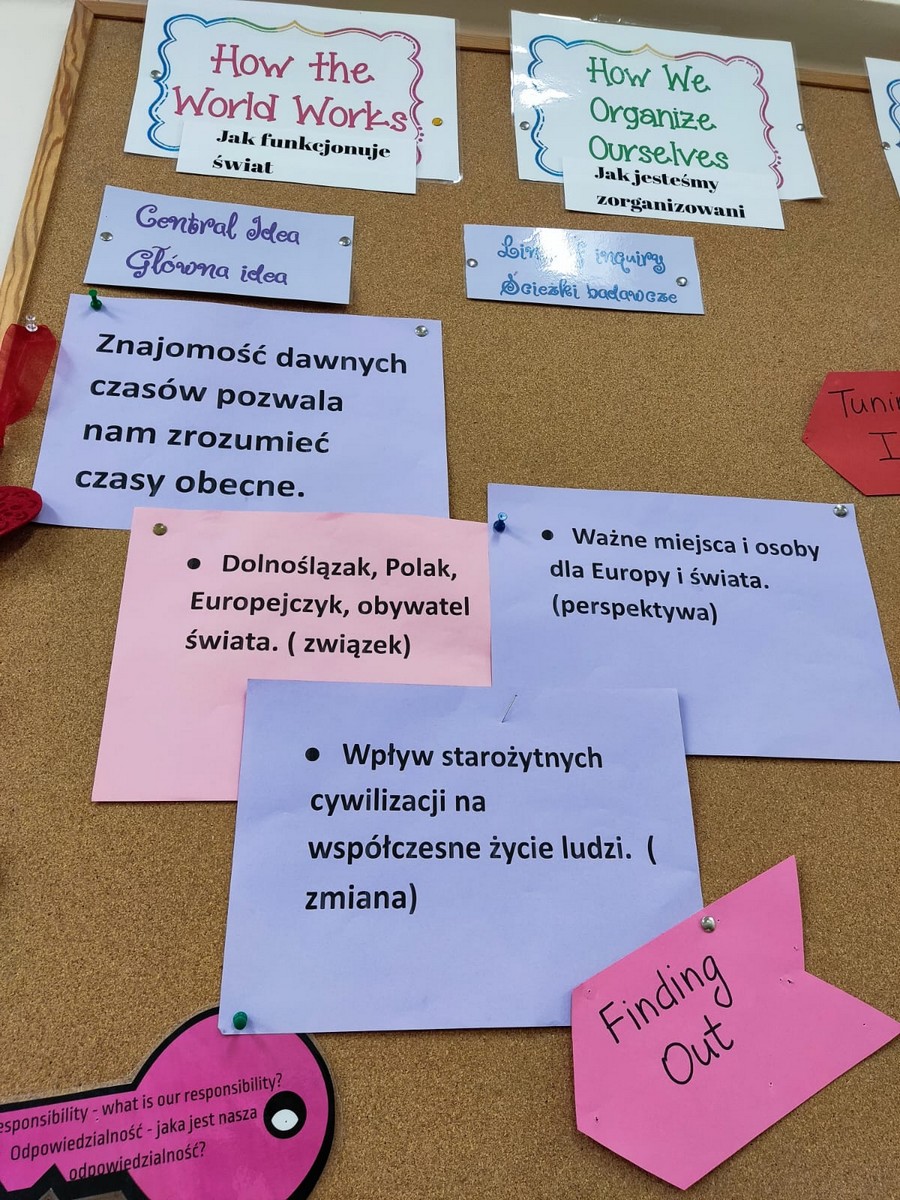 How the
World Works
Jak funkcjonuje
świat
How We
Organize
Ourselves
Jak jesteśmy
zorganizowani
Central Idea
Główna idea
inquiry
Ścieżki badawcze
Znajomość dawnych
czasów pozwala
nam zrozumieć
czasy obecne.
• Dolnoślązak, Polak,
Europejczyk, obywatel
świata. ( związek)
• Ważne miejsca i osoby
dla Europy i świata.
(perspektywa)
• Wpływ starożytnych
cywilizacji na
współczesne życie ludzi. (
zmiana)
Finding
Out
esponsibility - what is our responsibility?
Odpowiedzialność - jaka jest nasza
odpowiedzialność?